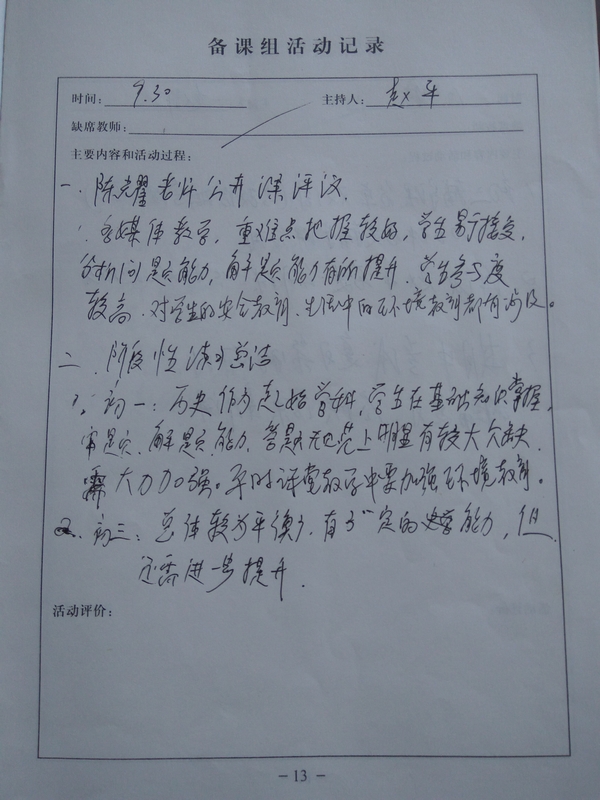 备课组活动记录
时间: 9.30 主持人: 赵平
缺席教师:
主要内容和活动过程:
一、陈老师公开课评议
多媒体教学,重难点把握较好,学生易于接受,
分析问题能力,解题能力有所提升,学生参与度
较高。对学生的安全教育、生活中的环境教育都有涉及。
二、阶段性练习总结
1、初一:历史作为起始学科,学生在基础知识掌握,
审题、解题能力,答题规范上明显有较大欠缺,
需大力加强。平时课堂教学中要加强环境教育。
2、初三:总体较为平衡,有了一定的能力,但
还需进一步提升.
活动评价:
- 13 -